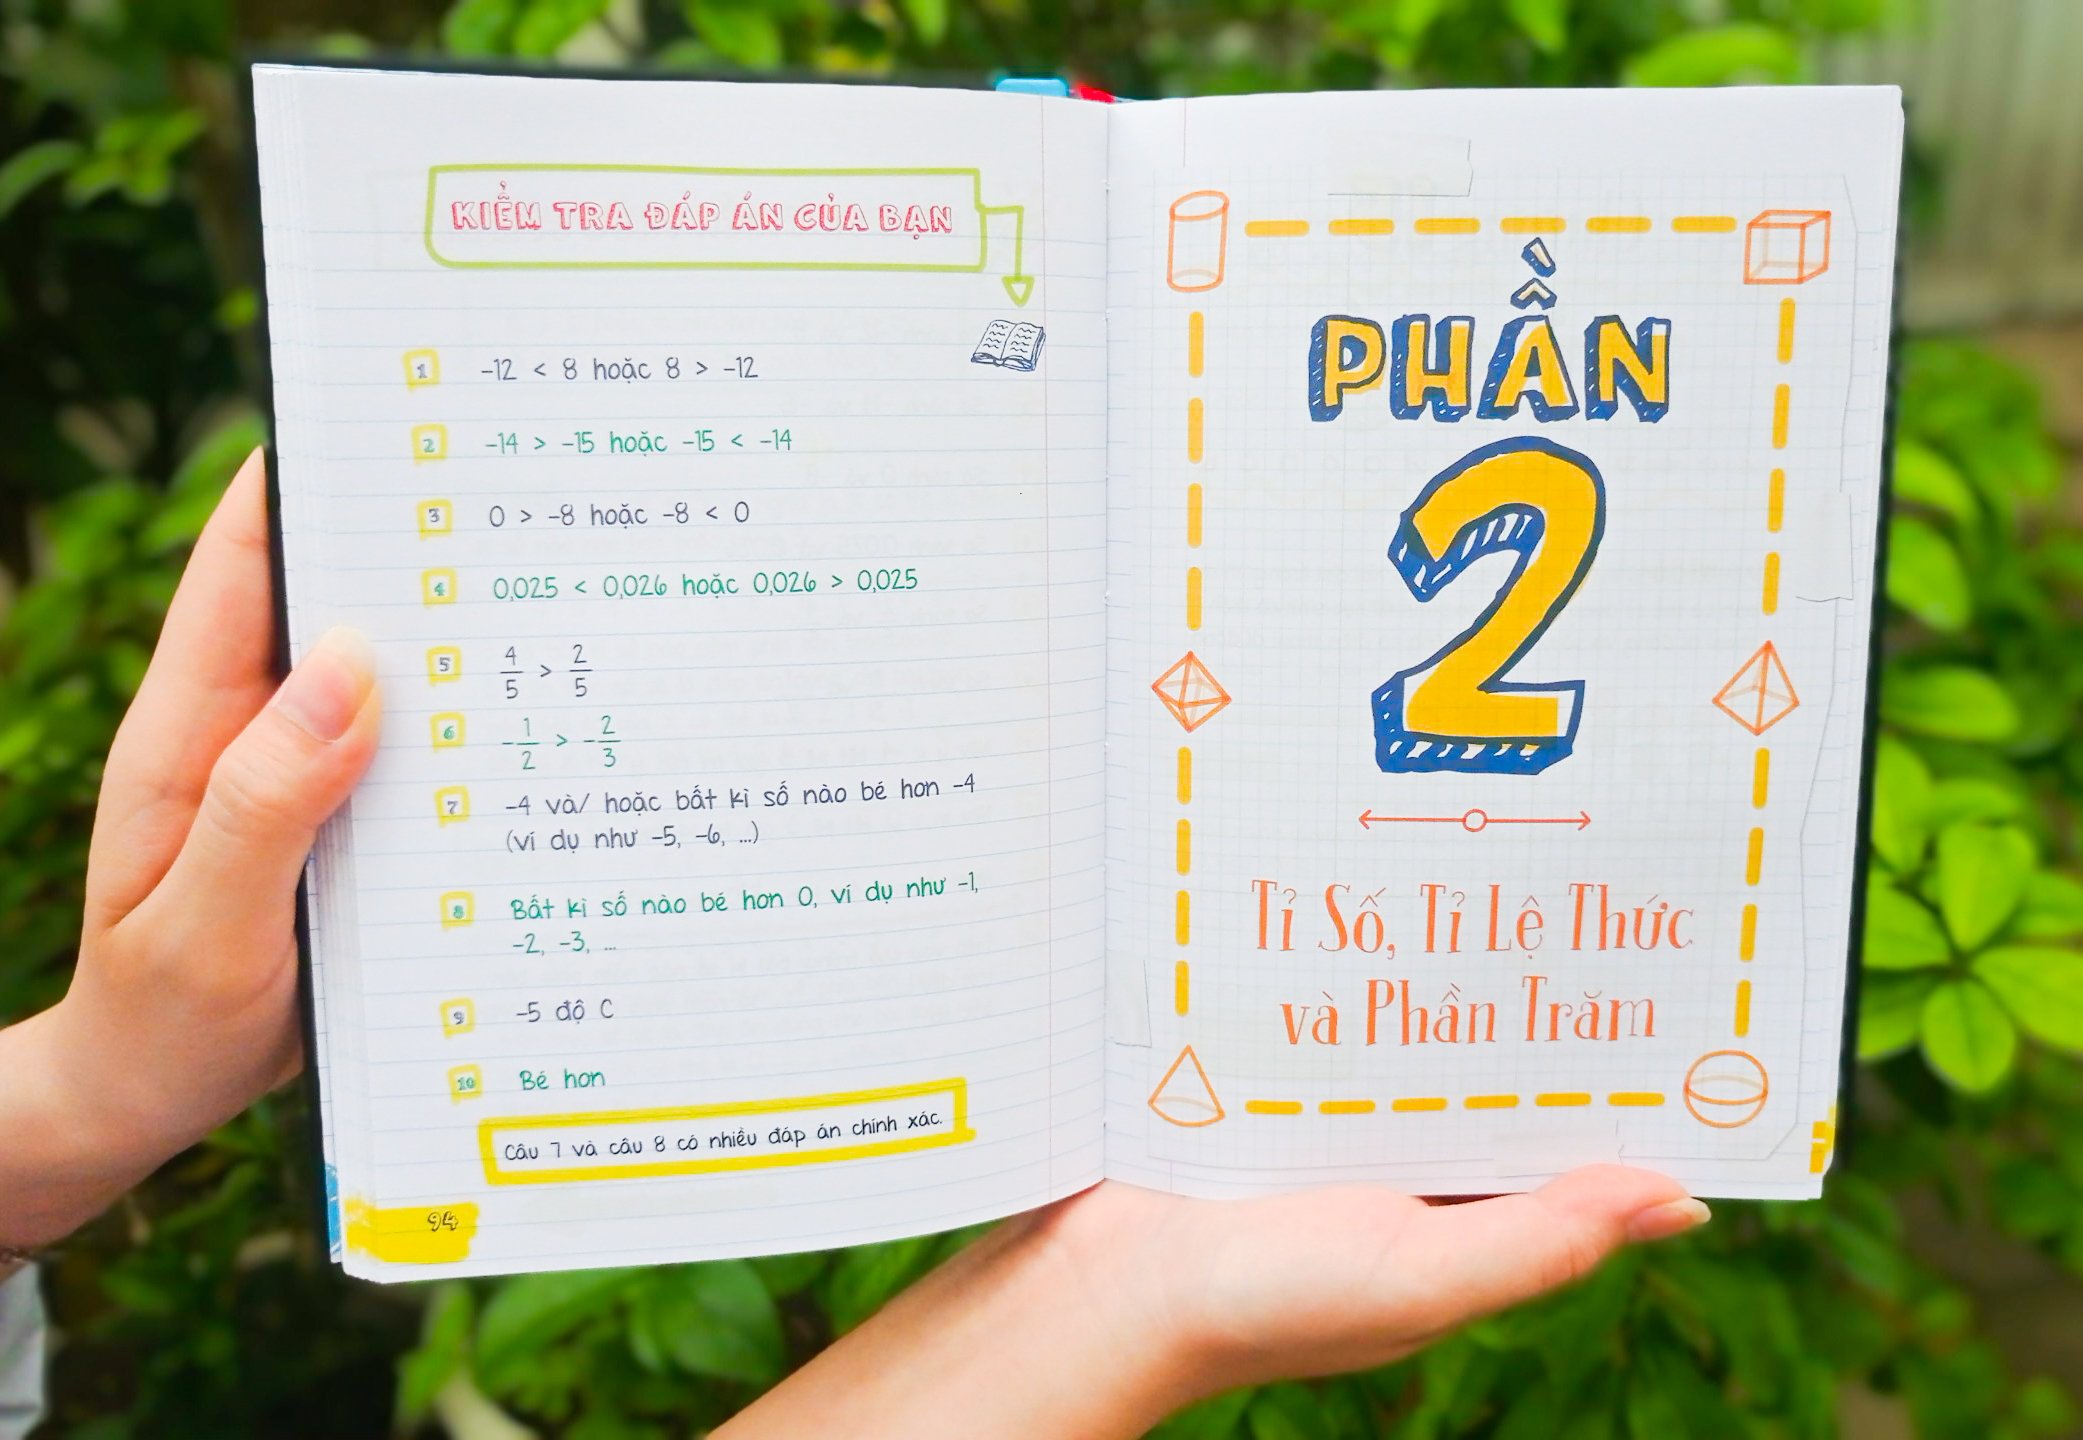 KIỂM TRA ĐÁP ÁN CỦA BẠN
1 -12 < 8 hoặc 8 > -12
2 -14 > -15 hoặc -15 < -14
3 0 > -8 hoặc -8 < 0
4 0,025 < 0,026 hoặc 0,026 > 0,025
5 4/5 > 2/5
6 -1/2 > -2/3
7 -4 và/ hoặc bất kì số nào bé hơn -4
(ví dụ như -5, -6, ...)
8 Bất kì số nào bé hơn 0, ví dụ như -1,
-2, -3, ...
9 -5 độ C
10 Bé hơn
Câu 7 và câu 8 có nhiều đáp án chính xác.
94
PHẦN
2
Tỉ Số, Tỉ Lệ Thức
và Phần Trăm